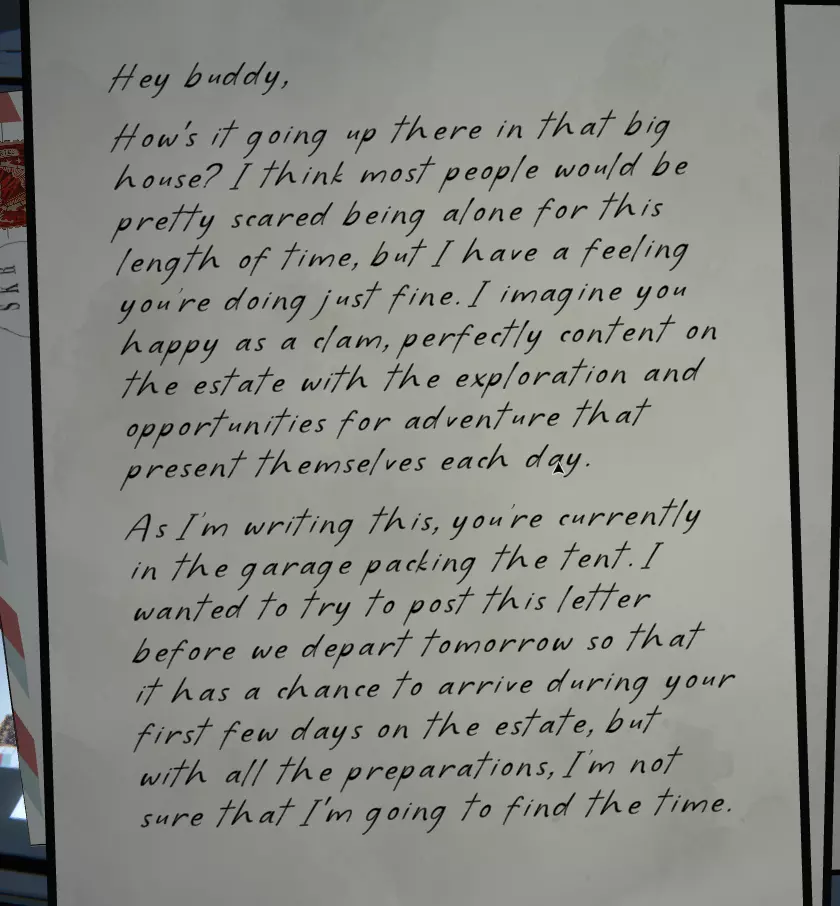 Hey buddy,
How's it going up there in that big
house? I think most people would be
pretty scared being alone for this
length of time, but I have a feeling
you're doing just fine. I imagine you
happy as a clam, perfectly content on
the estate with the exploration and
opportunities for adventure that
present themselves each day.
As I'm writing this, you're currently
in the garage packing the tent. I
wanted to try to post this letter
before we depart tomorrow so that
it has a chance to arrive during your
first few days on the estate, but
with all the preparations, I'm not
sure that I'm going to find the time.